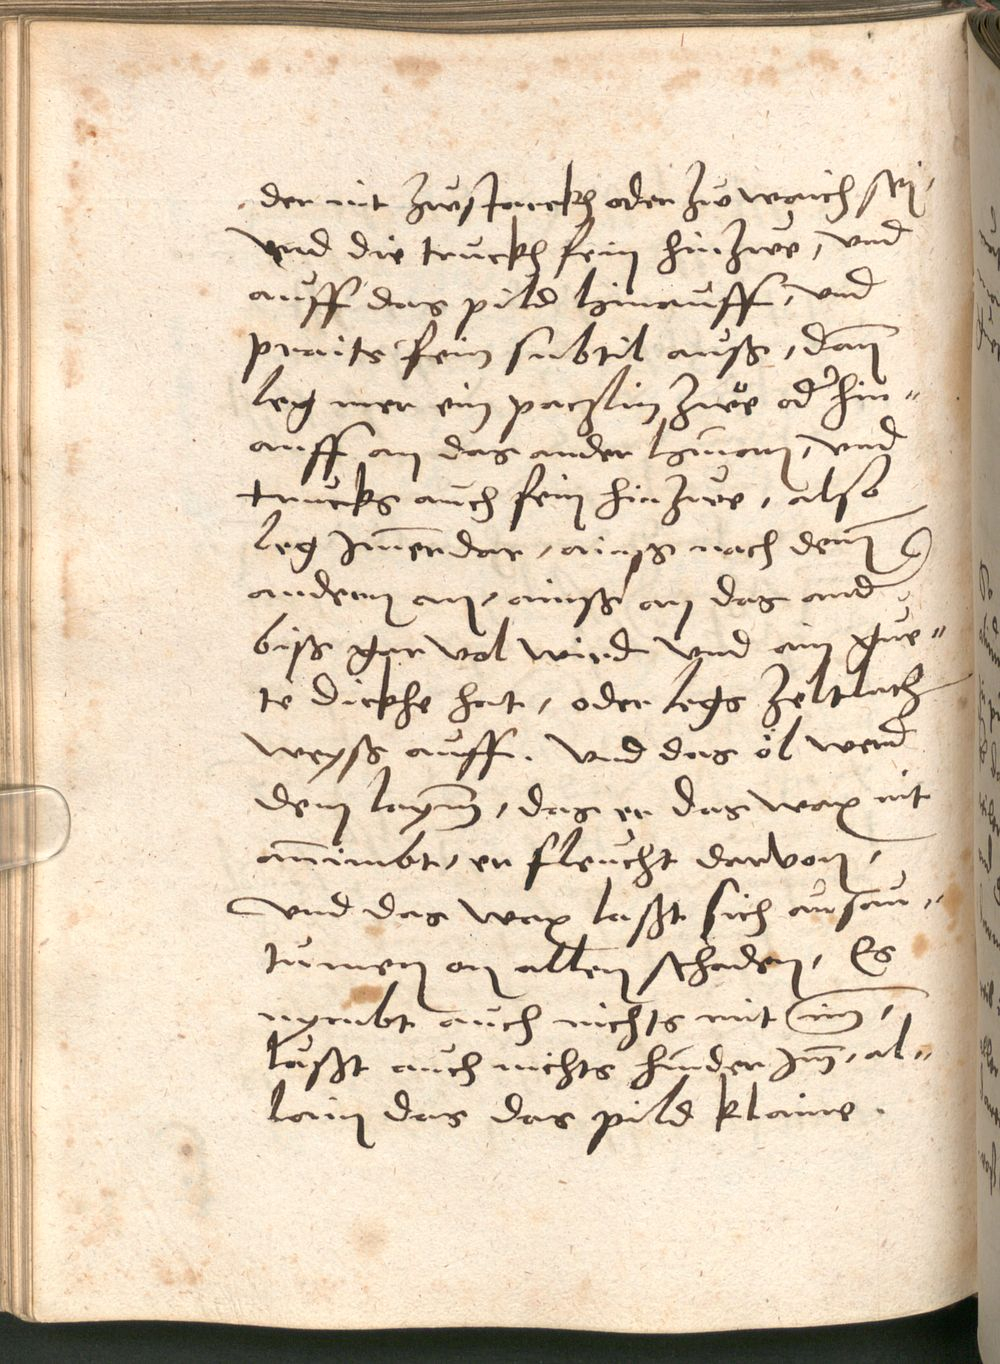 der nit zwstarckh oder zw waich sei,
vnd die truckh fein hinzwe, vnd
auff das pild hinauff, vnd
praits fein subtil auß, dan̄
leg mer ein paczlin zwe od' hin„
auff an das ander hinan, vnd
trucks auch fein hinzwe, also
leg Im̄erdar, ainß nach dem̄
andern an, ainß an das and
biß gar vol wird vnd ain gue„
te dickhe hat, oder legs zeltlach
weyß auff. vnd das öl werd
dem laym̄, das er das wax nit
an̄imbt, er fleucht darvon,
vnd das wax laßt sich
on allen schaden, Es
nymbt auch nichts mit im̄,
laßt auch nichts hinder Im̄, al„
lain das das pild klaine.